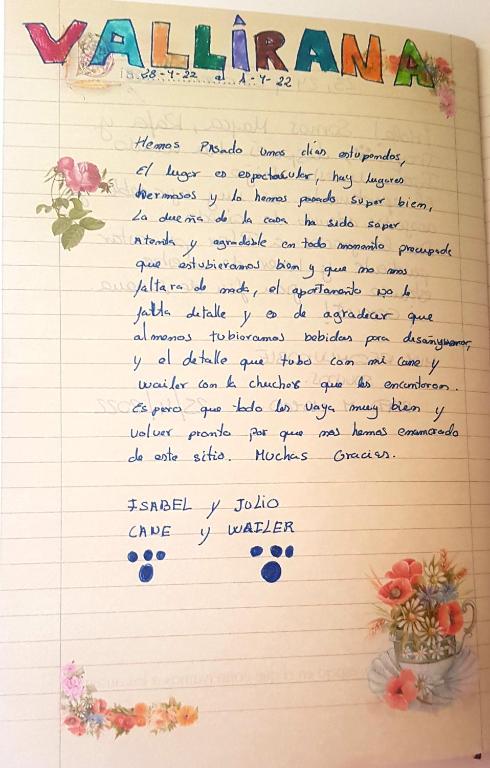 VALLIRANA
28-4-22 al 1-4-22
Hemos Pasado unos días estupendos,
El lugar es espectacular, hay lugares
hermosos y lo hemos pasado super bien,
La dueña de la casa ha sido super
Atenta y agradable en todo momento preocupada
que estubieramos bien y que no nos
faltara de nada, el apartamento no le
falta detalle y es de agradecer que
al menos tubieramos bebidas para desayunar,
y el detalle que tubo con mi Cane y
wailer con la chuches que les encantaron.
Espero que todo les vaya muy bien y
volver pronto por que nos hemos enamorado
de este sitio. Muchas Gracias.
ISABEL y JULIO
CANE y WAILER